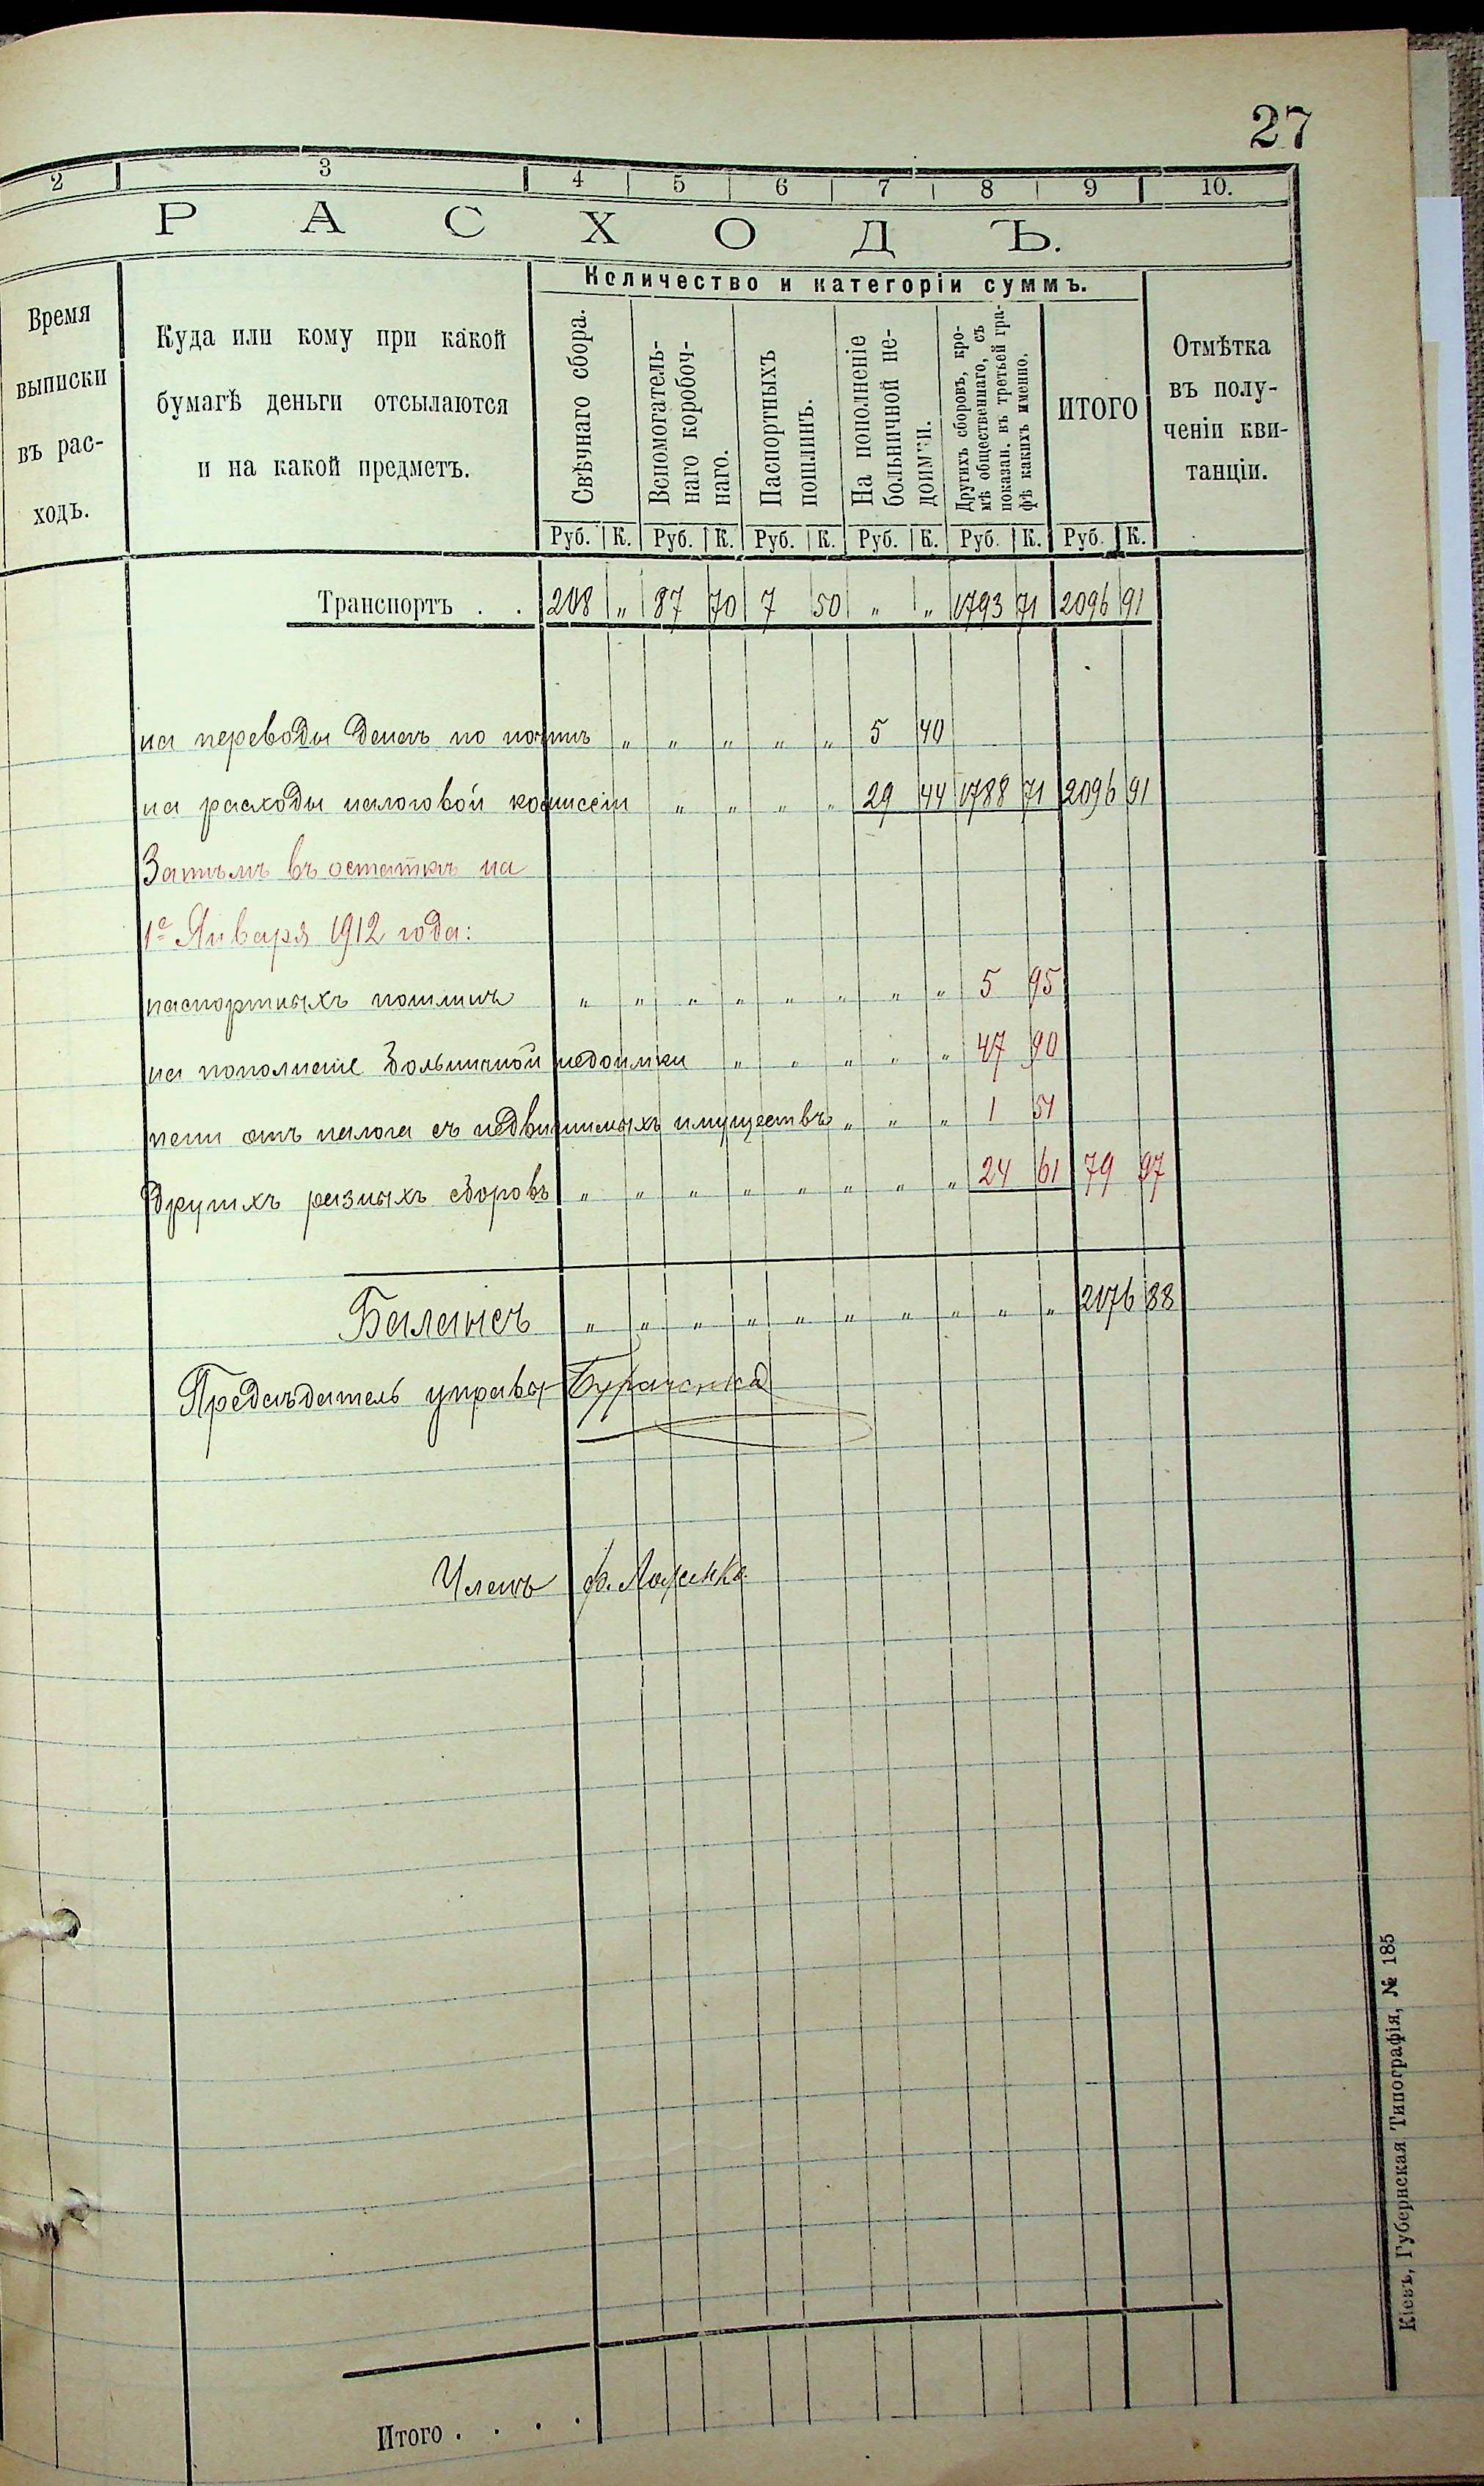 27
2 3 4 5 6 7 8 9 10.
РАСХОДЪ.
Количество и категоріи суммъ.
Время
выписки
въ рас-
ходъ.
Куда или кому при какой
бумагѣ деньги отсылаются
и на какой предметъ.
Свѣчнаго сбора.
Вспомогатель-
наго коробоч-
наго.
Паспортныхъ
пошлинъ.
На пополненіе
больничной не-
доимки.
Другихъ сборовъ, кро-
мѣ общественнаго, съ
показан. въ третьей гра-
фѣ какихъ именно.
ИТОГО
Отмѣтка
въ полу-
ченіи кви-
танціи.
Руб. К. Руб. К. Руб. К. Руб. К. Руб. К. Руб. К.
Транспортъ . . 208 „ 87 70 7 50 „ „ 1793 71 2096 91
на переводы денегъ по почтѣ „ „ „ „ „ 5 40
на расходы налоговой комиссіи „ „ „ „ 29 44 1788 71 2096 91
Затѣмъ въ остаткѣ на
1е Января 1912 года:
паспортныхъ пошлинъ „ „ „ „ „ „ „ „ 5 95
на пополненіе больничной недоимки „ „ „ „ „ 47 90
пени отъ налога съ недвижимыхъ имуществъ „ „ „ 1 51
другихъ разныхъ сборовъ „ „ „ „ „ „ „ „ 24 61 79 97
Балансъ „ „ „ „ „ „ „ „ „ „ 2176 88
Предсѣдатель управы
Членъ
Итого . . . .
Кіевъ, Губернская Типографія, № 185